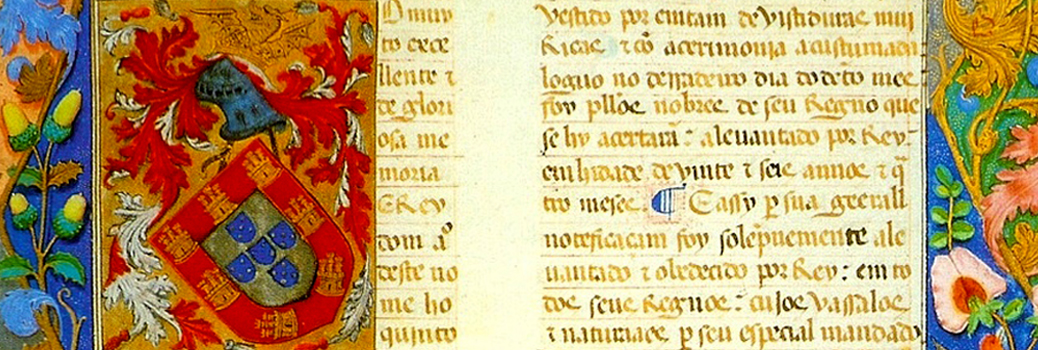 O muy
to exce
llente ⁊
de glori
osa me
moria
ElRey
dom aº
deste no
me ho
quinto
vestido por emtam de vistiduras mui
Ricas ⁊ cõ acerimonia acustumada:
loguo no derradeiro dia do deto mes
foy pllos nobres de seu Regno que
se hy acertarã: aleuantado por Rey.
em hidade de vinte ⁊ seis annos ⁊ q̃
tro meses ¶ E assy ꝑ sua geerall
noteficacam foy solẽpnemente ale
uantado ⁊ obedecido por Rey: em to
dos seus Regnos: cujos vassalos
⁊ naturaaes ꝑ seu especial mandado